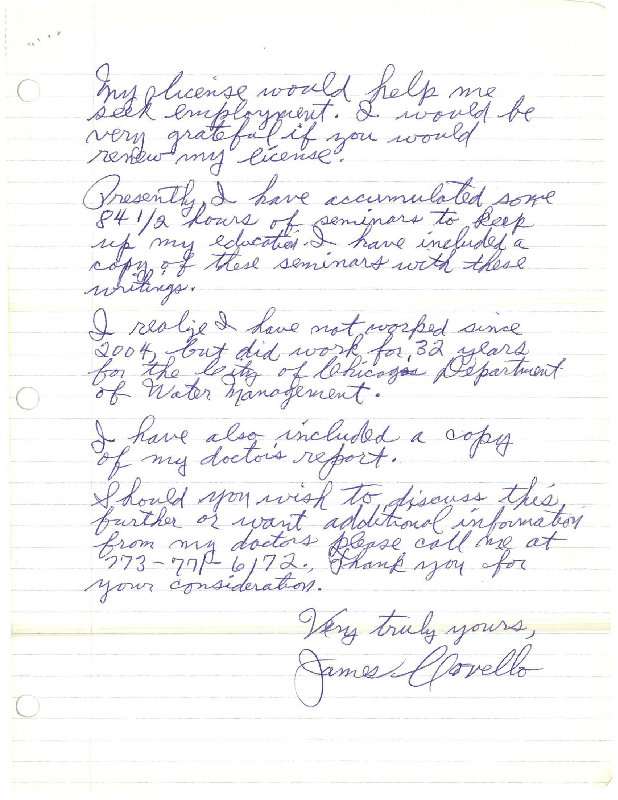 My license would help me
seek employment. I would be
very grateful if you would
renew my license.
Presently, I have accumulated some
84 1/2 hours of seminars to keep
up my education. I have included a
copy of these seminars with these
writings.
I realize I have not worked since
2004, but did work for 32 years
for the City of Chicago Department
of Water Management.
I have also included a copy
of my doctor's report.
Should you wish to discuss this
further or want additional information
from my doctors please call me at
Thank you for
your consideration.
Very truly yours,
James Covello